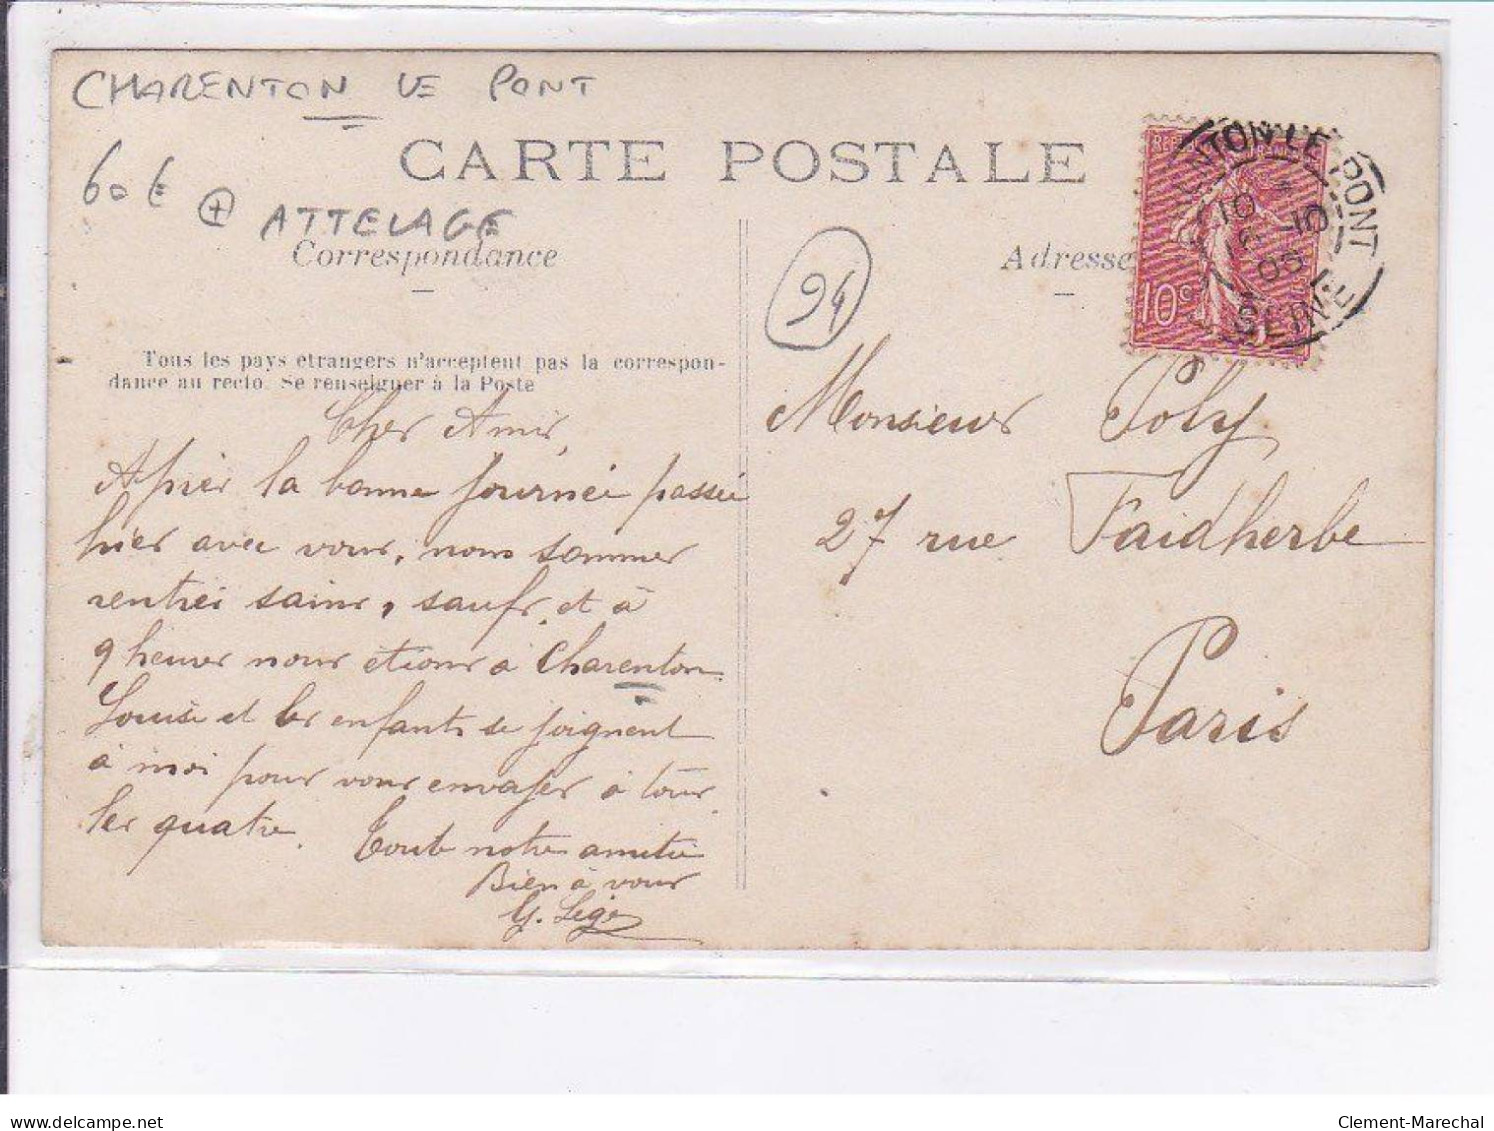 CHARENTON LE PONT
CARTE POSTALE
60 € + ATTELAGE
Correspondance
Adresse
94
REPUB
10c
CHARENTON LE PONT
10
10
05
SEINE
Tous les pays étrangers n'acceptent pas la correspon-
dance au recto. Se renseigner à la Poste
Cher Amis,
Après la bonne journée passée
hier avec vous, nous sommes
rentrés sains, saufs, et à
9 heures nous étions à Charenton.
Louise et les enfants se joignent
à moi pour vous envoyer à tous
les quatre. Toute notre amitié
Bien à vous
G. Lége
Monsieur Poly
27 rue Faidherbe
Paris
delcampe.net
Clement-Marechal